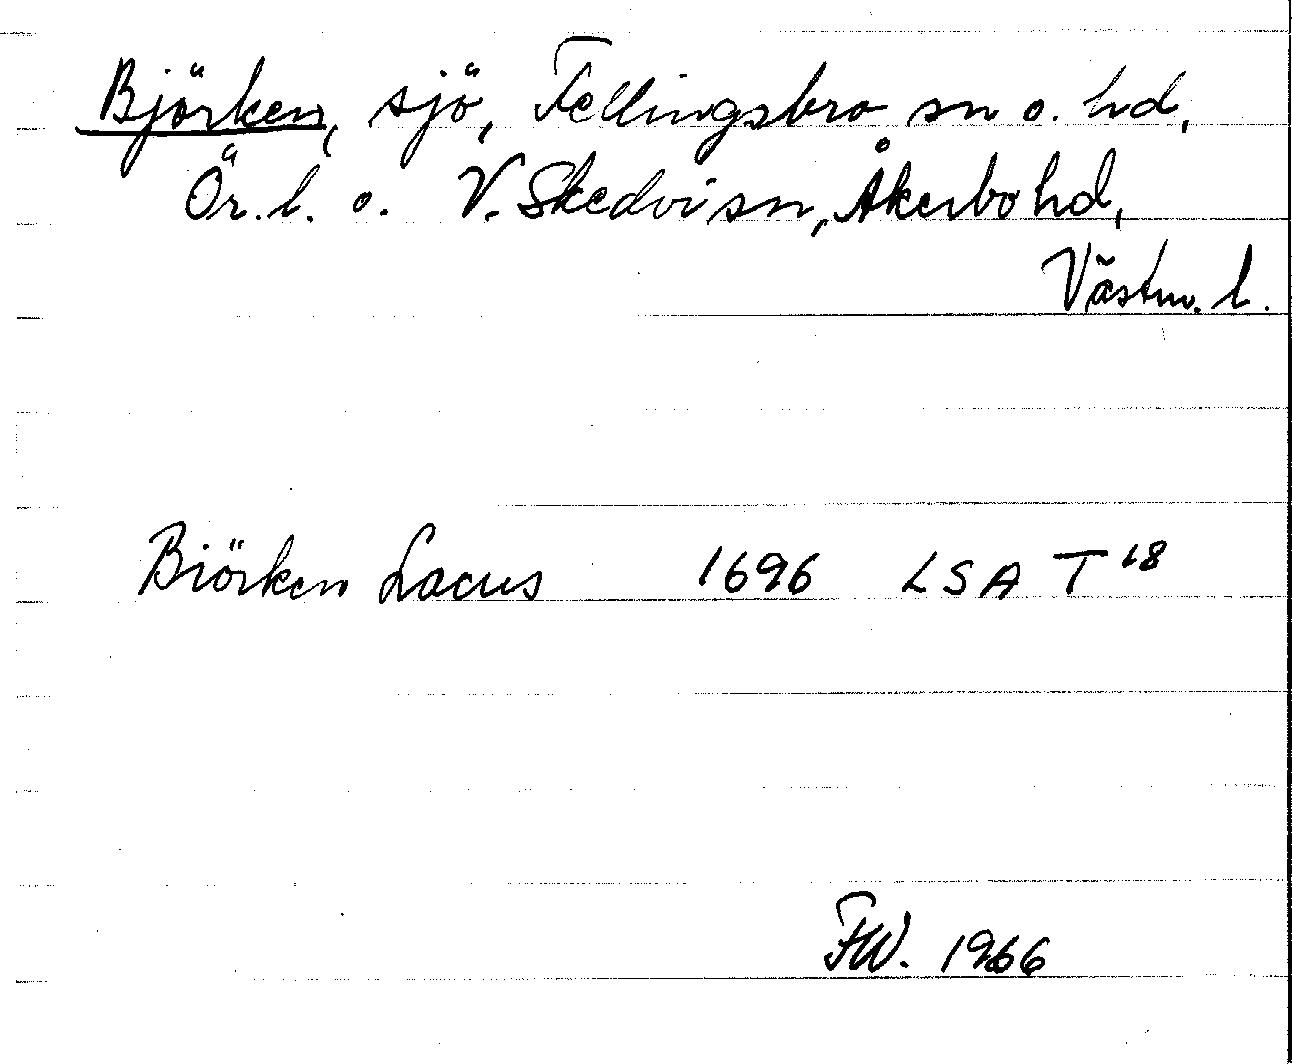 Björken, sjö, Fellingsbro sn o. hd,
Ör. l. o. V. Skedvi sn, Åkerbo hd,
Västm. l.
Biörken Lacus 1696 LSA T 18
FW. 1966